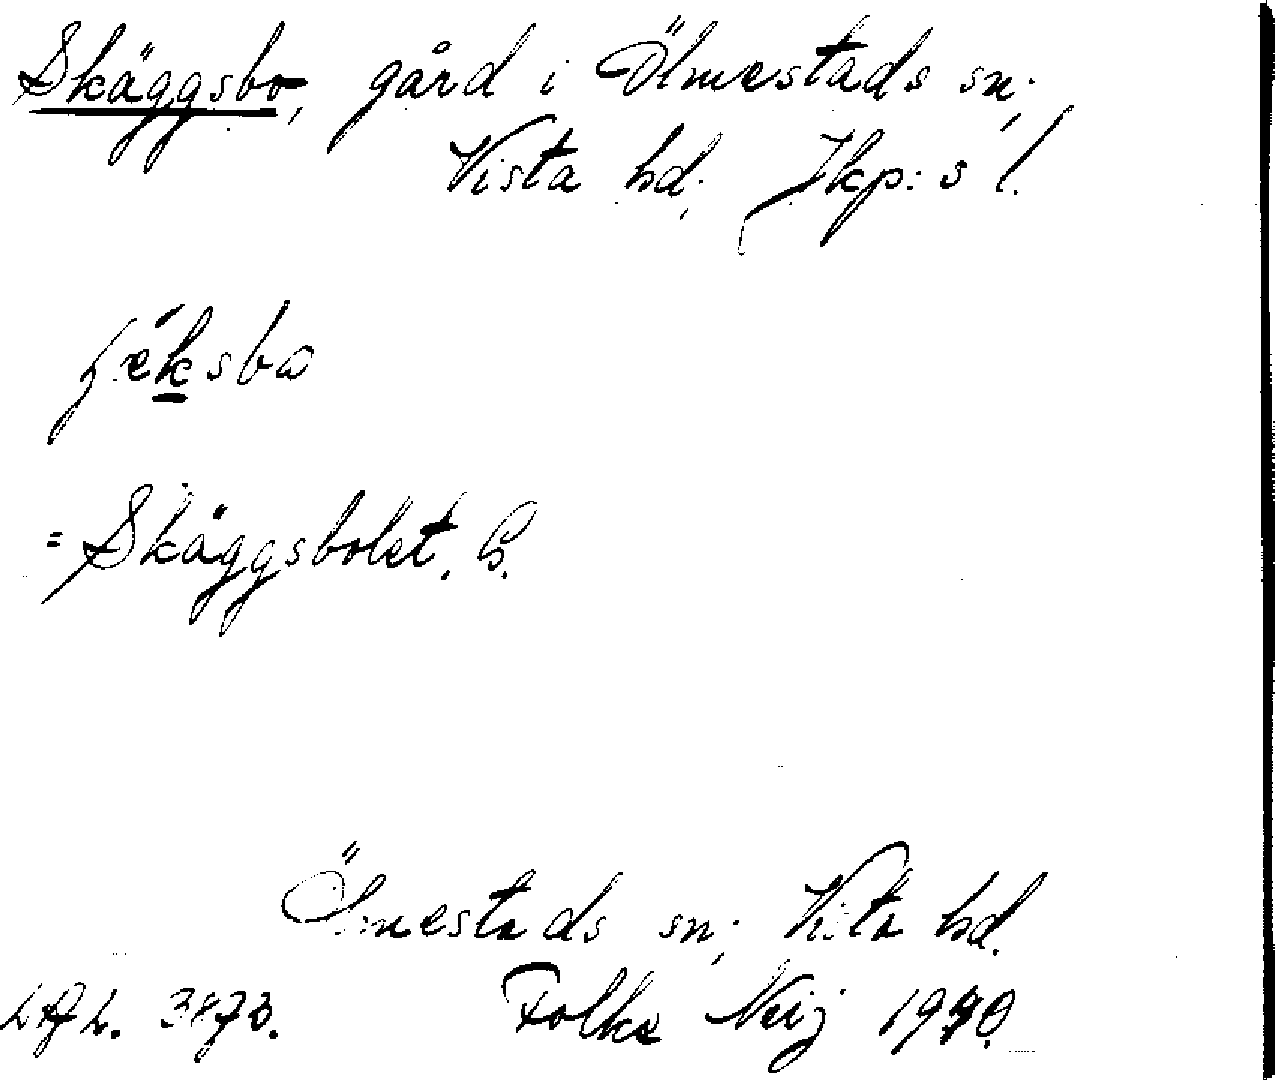 Skäggsbo, gård i Ölmestads sn;
Vista hd; Jkp:s l.
= Skäggsbolet. B.
Ölmestads sn; Vista hd.
Folke Neij 1940.